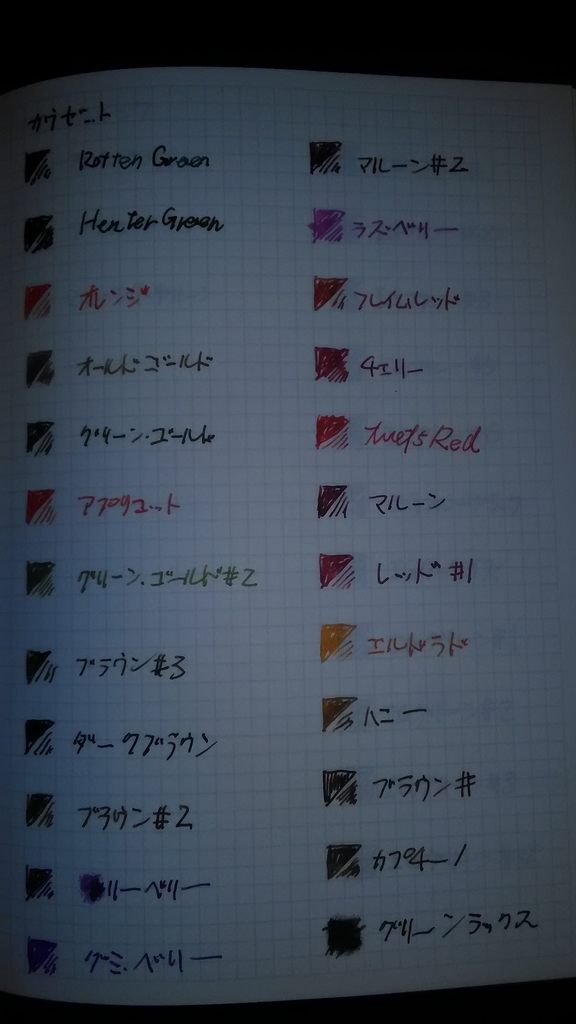 カウゼット
Rotten Green
Henter Green
オレンジ
オールドゴールド
グリーン・ゴールド
アプリコット
グリーン・ゴールド#2
ブラウン#3
ダークブラウン
ブラウン#2
リーベリー
グミ・ベリー
マルーン#2
ラズベリー
フレイムレッド
チェリー
Red
マルーン
レッド#1
エルドラド
ハニー
ブラウン#
カプチーノ
グリーンラックス